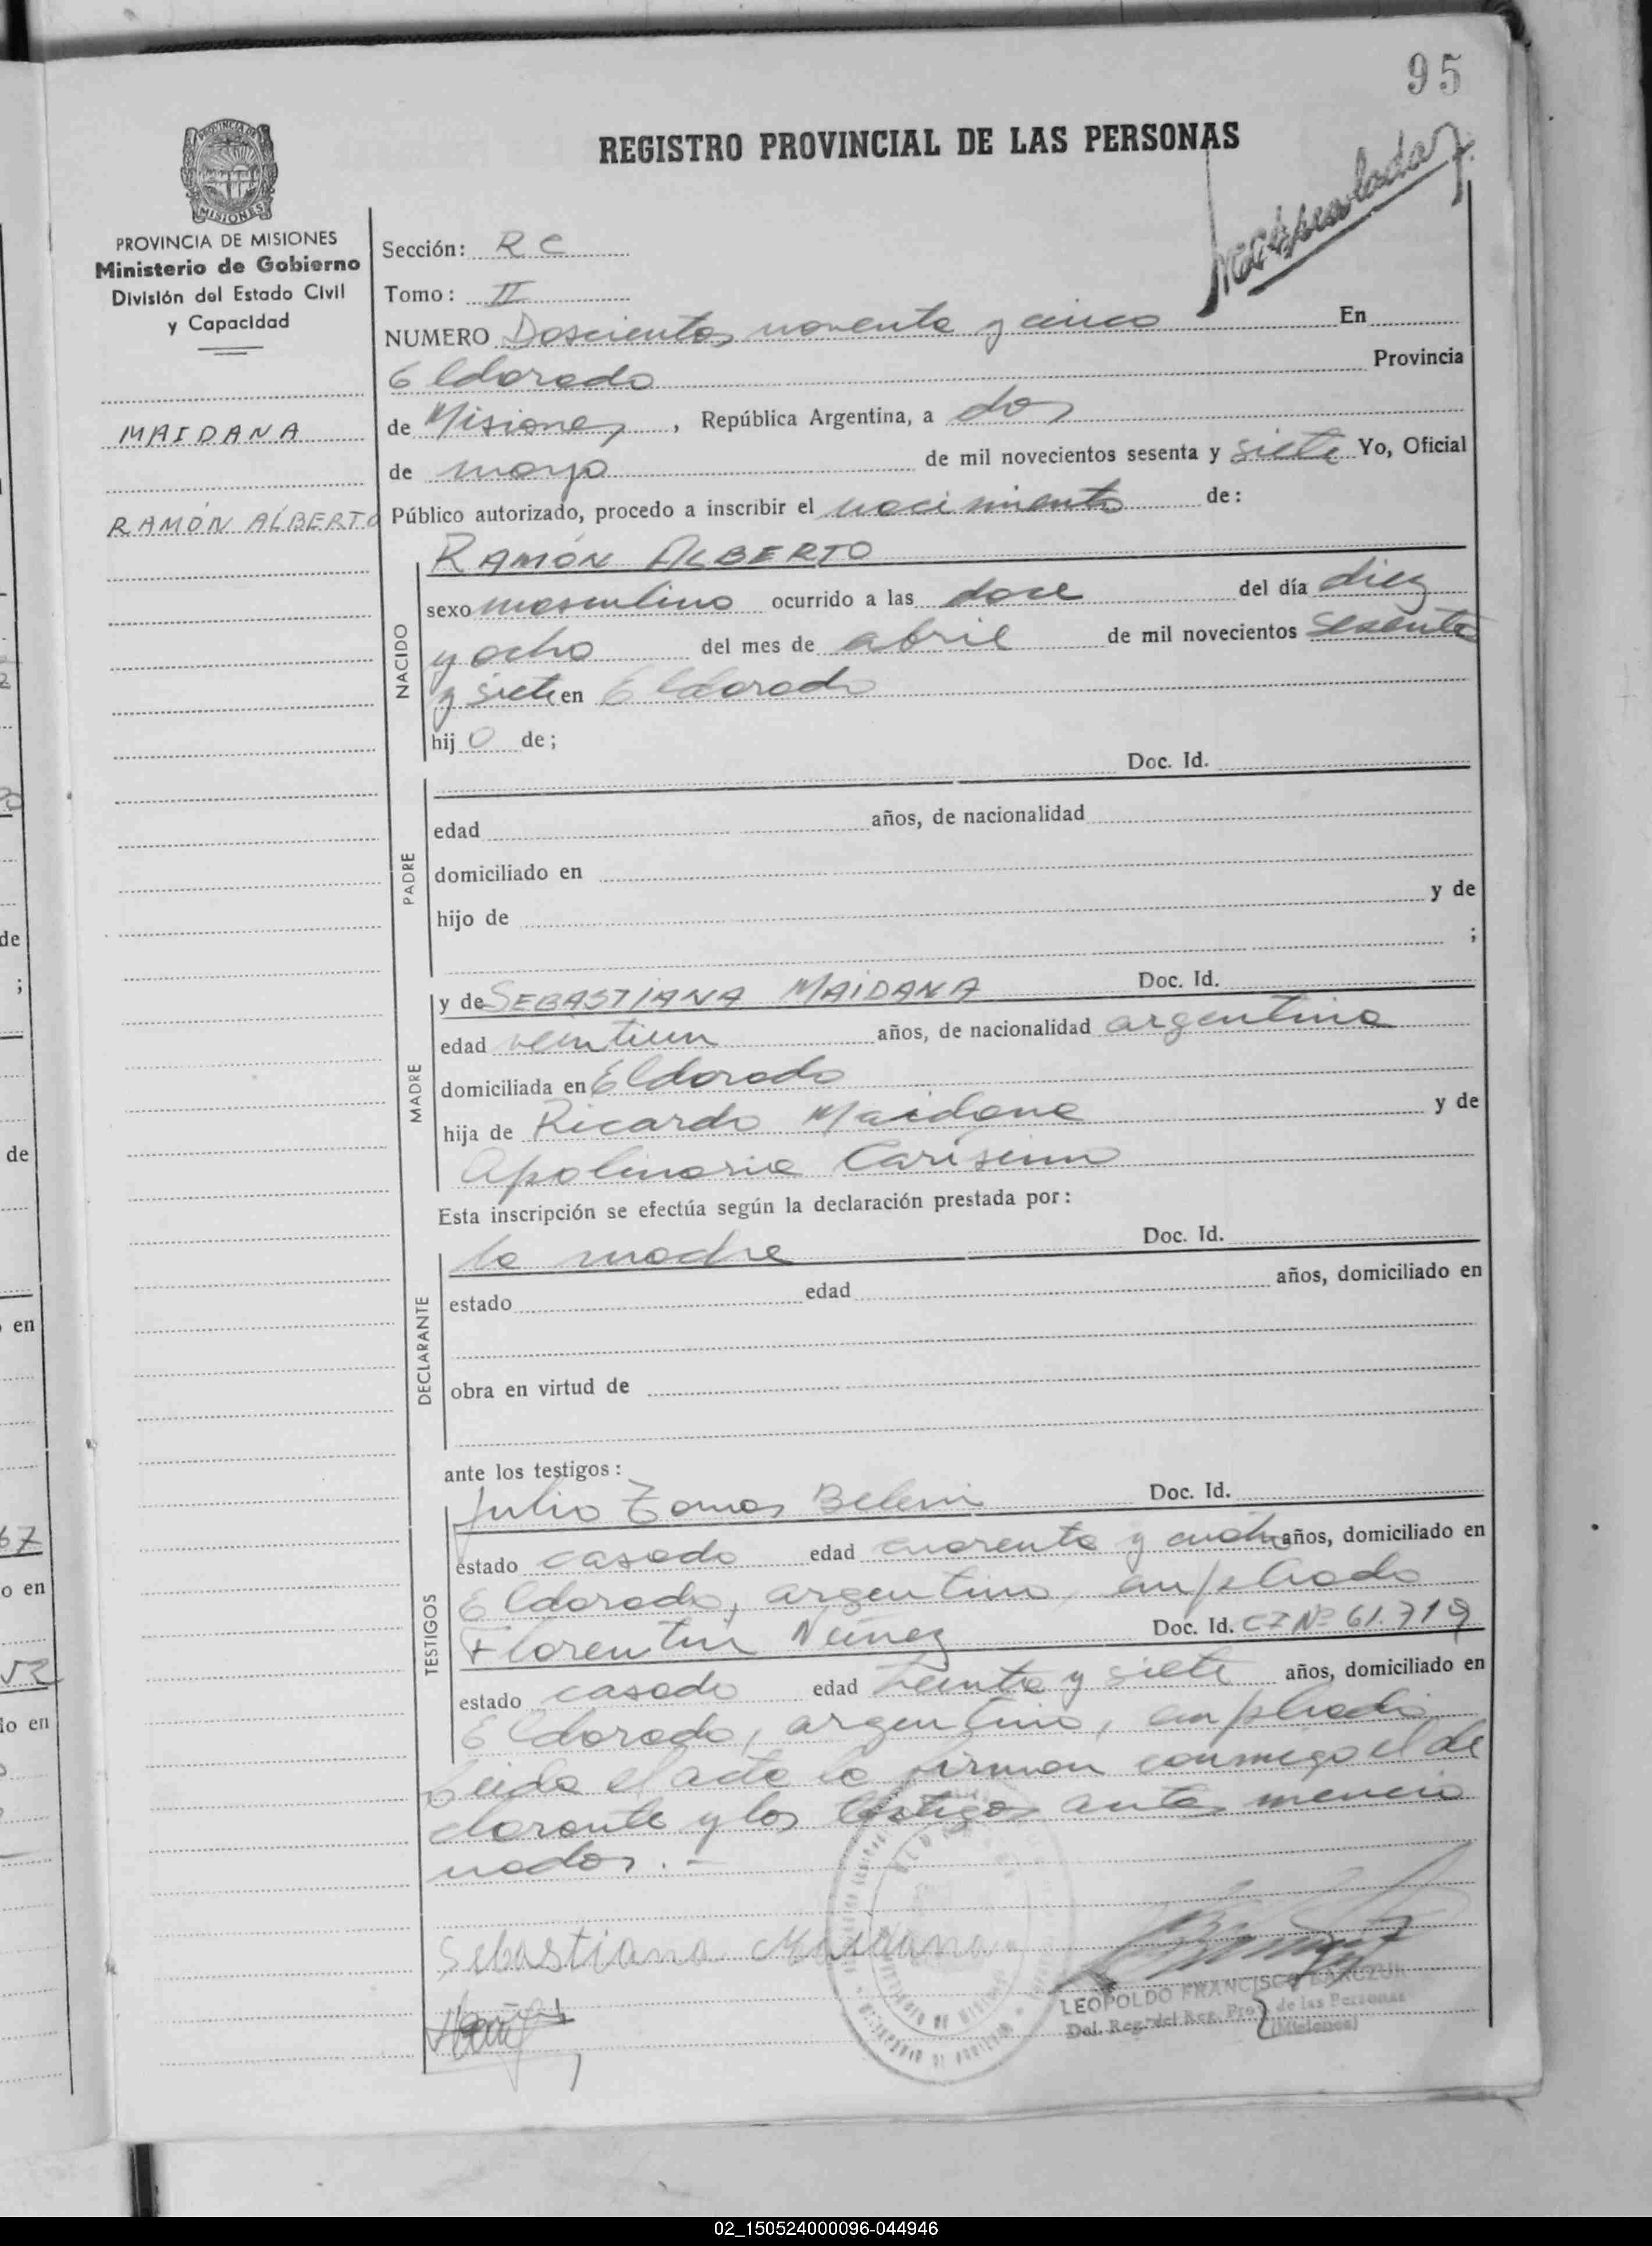 95
REGISTRO PROVINCIAL DE LAS PERSONAS
PROVINCIA DE MISIONES
MISIONES
PROVINCIA DE MISIONES
Ministerio de Gobierno
División del Estado Civil
y Capacidad
MAIDANA
RAMÓN ALBERTO
Sección: R C
Tomo: II
NUMERO Doscientos noventa y cinco En
Eldorado Provincia
de Misiones, República Argentina, a dos
de mayo de mil novecientos sesenta y siete Yo, Oficial
Público autorizado, procedo a inscribir el nacimiento de:
RAMÓN ALBERTO
NACIDO
sexo masculino ocurrido a las doce del día diez
y ocho del mes de abril de mil novecientos sesenta
y siete en Eldorado
hij o de;
Doc. Id.
PADRE
edad años, de nacionalidad
domiciliado en
hijo de y de
;
MADRE
y de SEBASTIANA MAIDANA Doc. Id.
edad veintiun años, de nacionalidad argentina
domiciliada en Eldorado
hija de Ricardo Maidana y de
Apolinaria
Esta inscripción se efectúa según la declaración prestada por:
DECLARANTE
la madre Doc. Id.
estado edad años, domiciliado en
obra en virtud de
ante los testigos:
TESTIGOS
Julio Doc. Id.
estado casado edad cuarenta y cuatro años, domiciliado en
Eldorado, argentino, empleado
Florentin Núñez Doc. Id. CI Nº 61.719
estado casado edad treinta y siete años, domiciliado en
Eldorado, argentino, empleado
Leida el acta la firman conmigo el de
clarante y los testigos antes mencio
nados. -
Sebastiana Maidana
LEOPOLDO FRANCISCO BARCZUK
Del. Reg. del Reg. Prov. de las Personas
(Misiones)
02_150524000096-044946